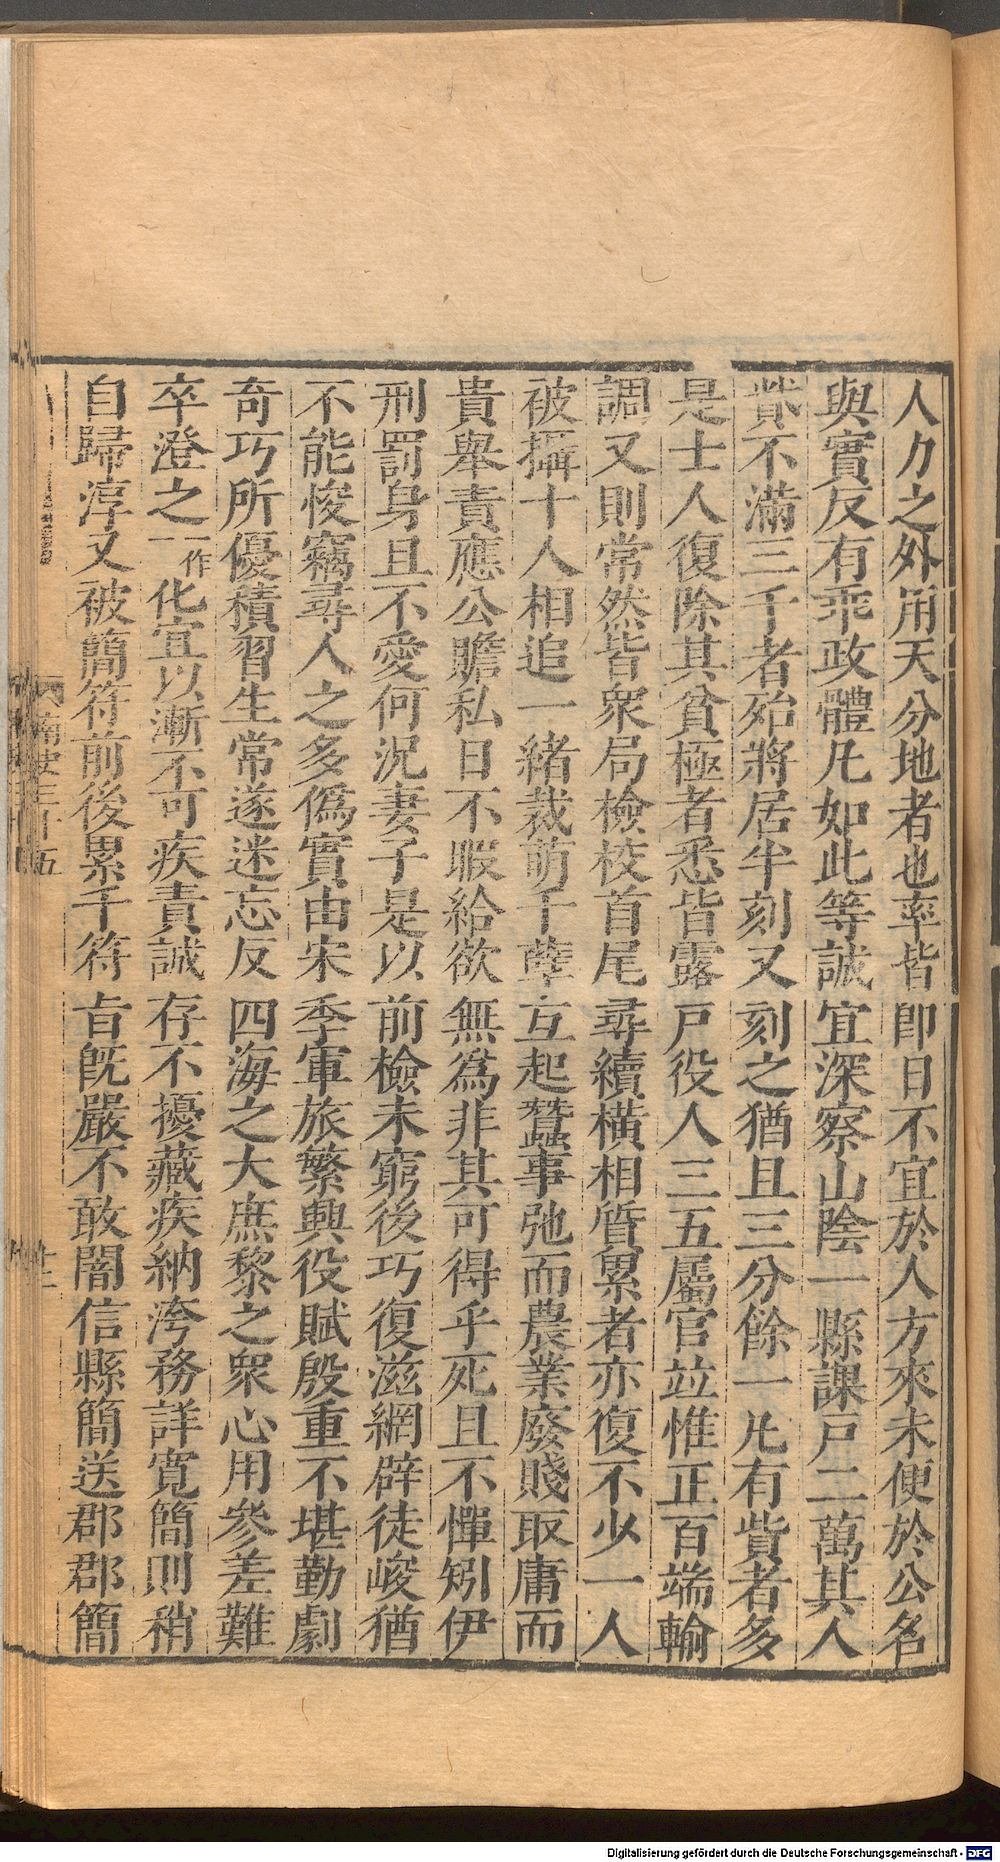 人力之外用天分地者也率皆即日不宜於人方來未便於公名
與實反有乖政體凡如此等誠宜深察山陰一縣課戸二萬其人
貲不滿三千者殆將居半刻又刻之猶且三分餘一凡有貲者多
是士人復除其貧極者悉皆露戸役人三五屬官竝惟正百端輸
調又則常然皆衆局檢校首尾尋續橫相質累者亦復不少一人
被攝十人相追一緒裁萌千孽互起蠶事弛而農業廢賤取庸而
貴舉責應公贍私日不暇給欲無爲非其可得乎死且不憚矧伊
刑罰身且不愛何況妻子是以前檢未窮後巧復滋網辟徒峻猶
不能悛竊尋人之多僞實由宋季軍旅繁興役賦殷重不堪勤劇
奇巧所優積習生常遂迷忘反四海之大庶黎之衆心用參差難
卒澄之一作化宜以漸不可疾責誠存不擾藏疾納洿務詳寬簡則稍
自歸淳又被簡符前後累千符旨旣嚴不敢闇信縣簡送郡郡簡
三十五
十二
Digitalisierung gefördert durch die Deutsche Forschungsgemeinschaft - DFG